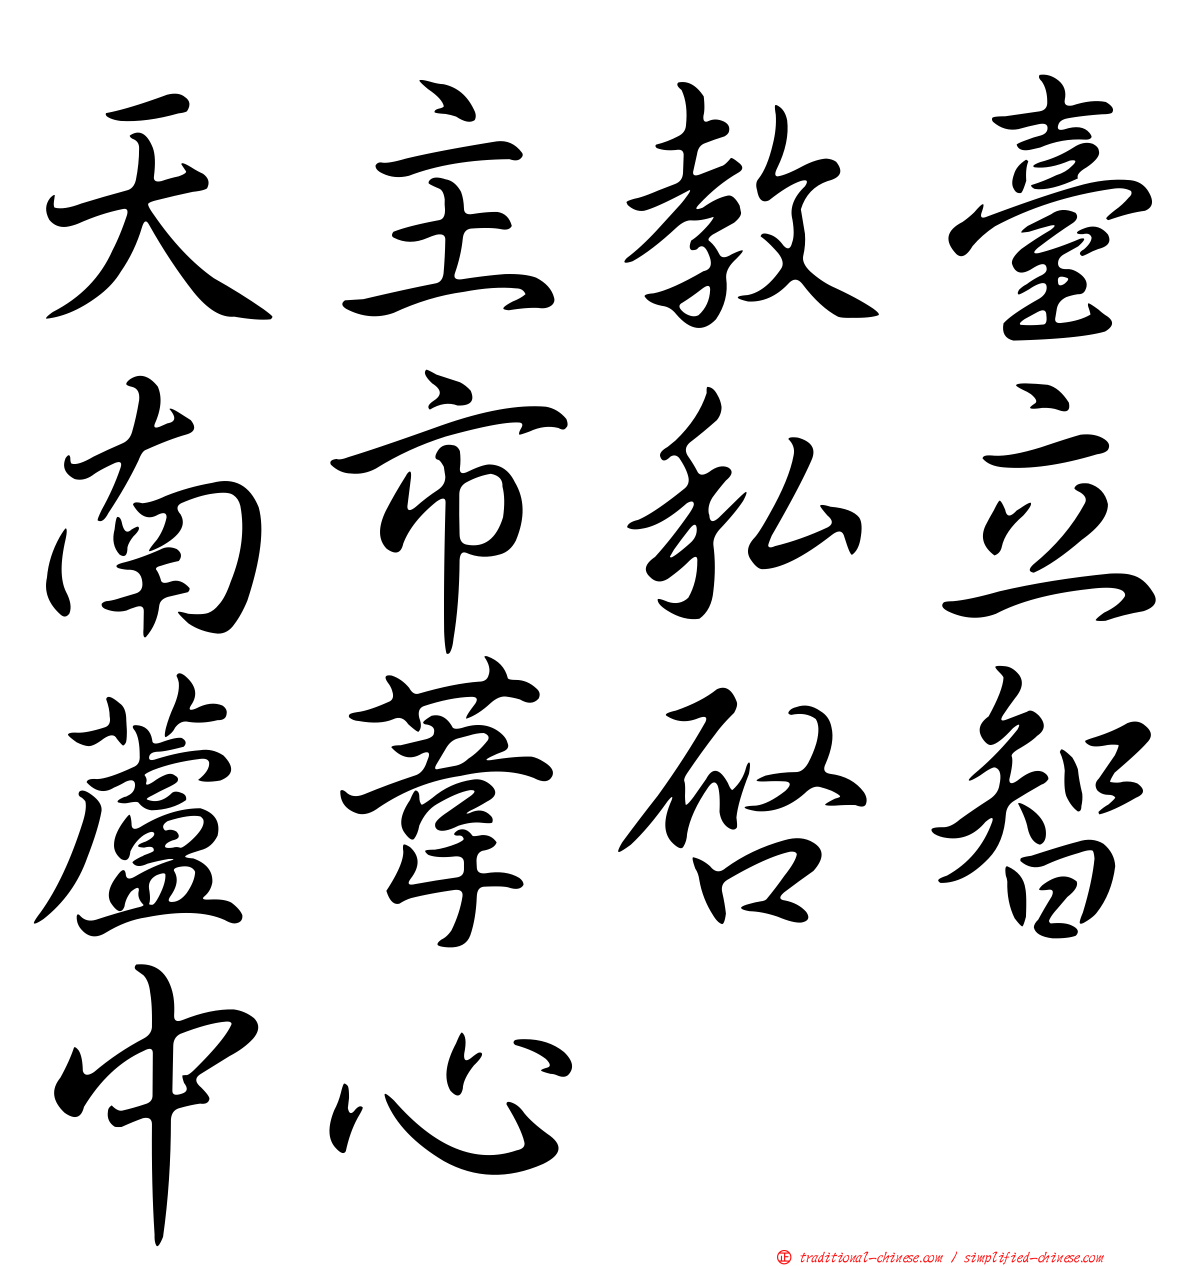 天主教臺
南市私立
蘆葦啓智
中心
㊣ traditional-chinese.com / simplified-chinese.com